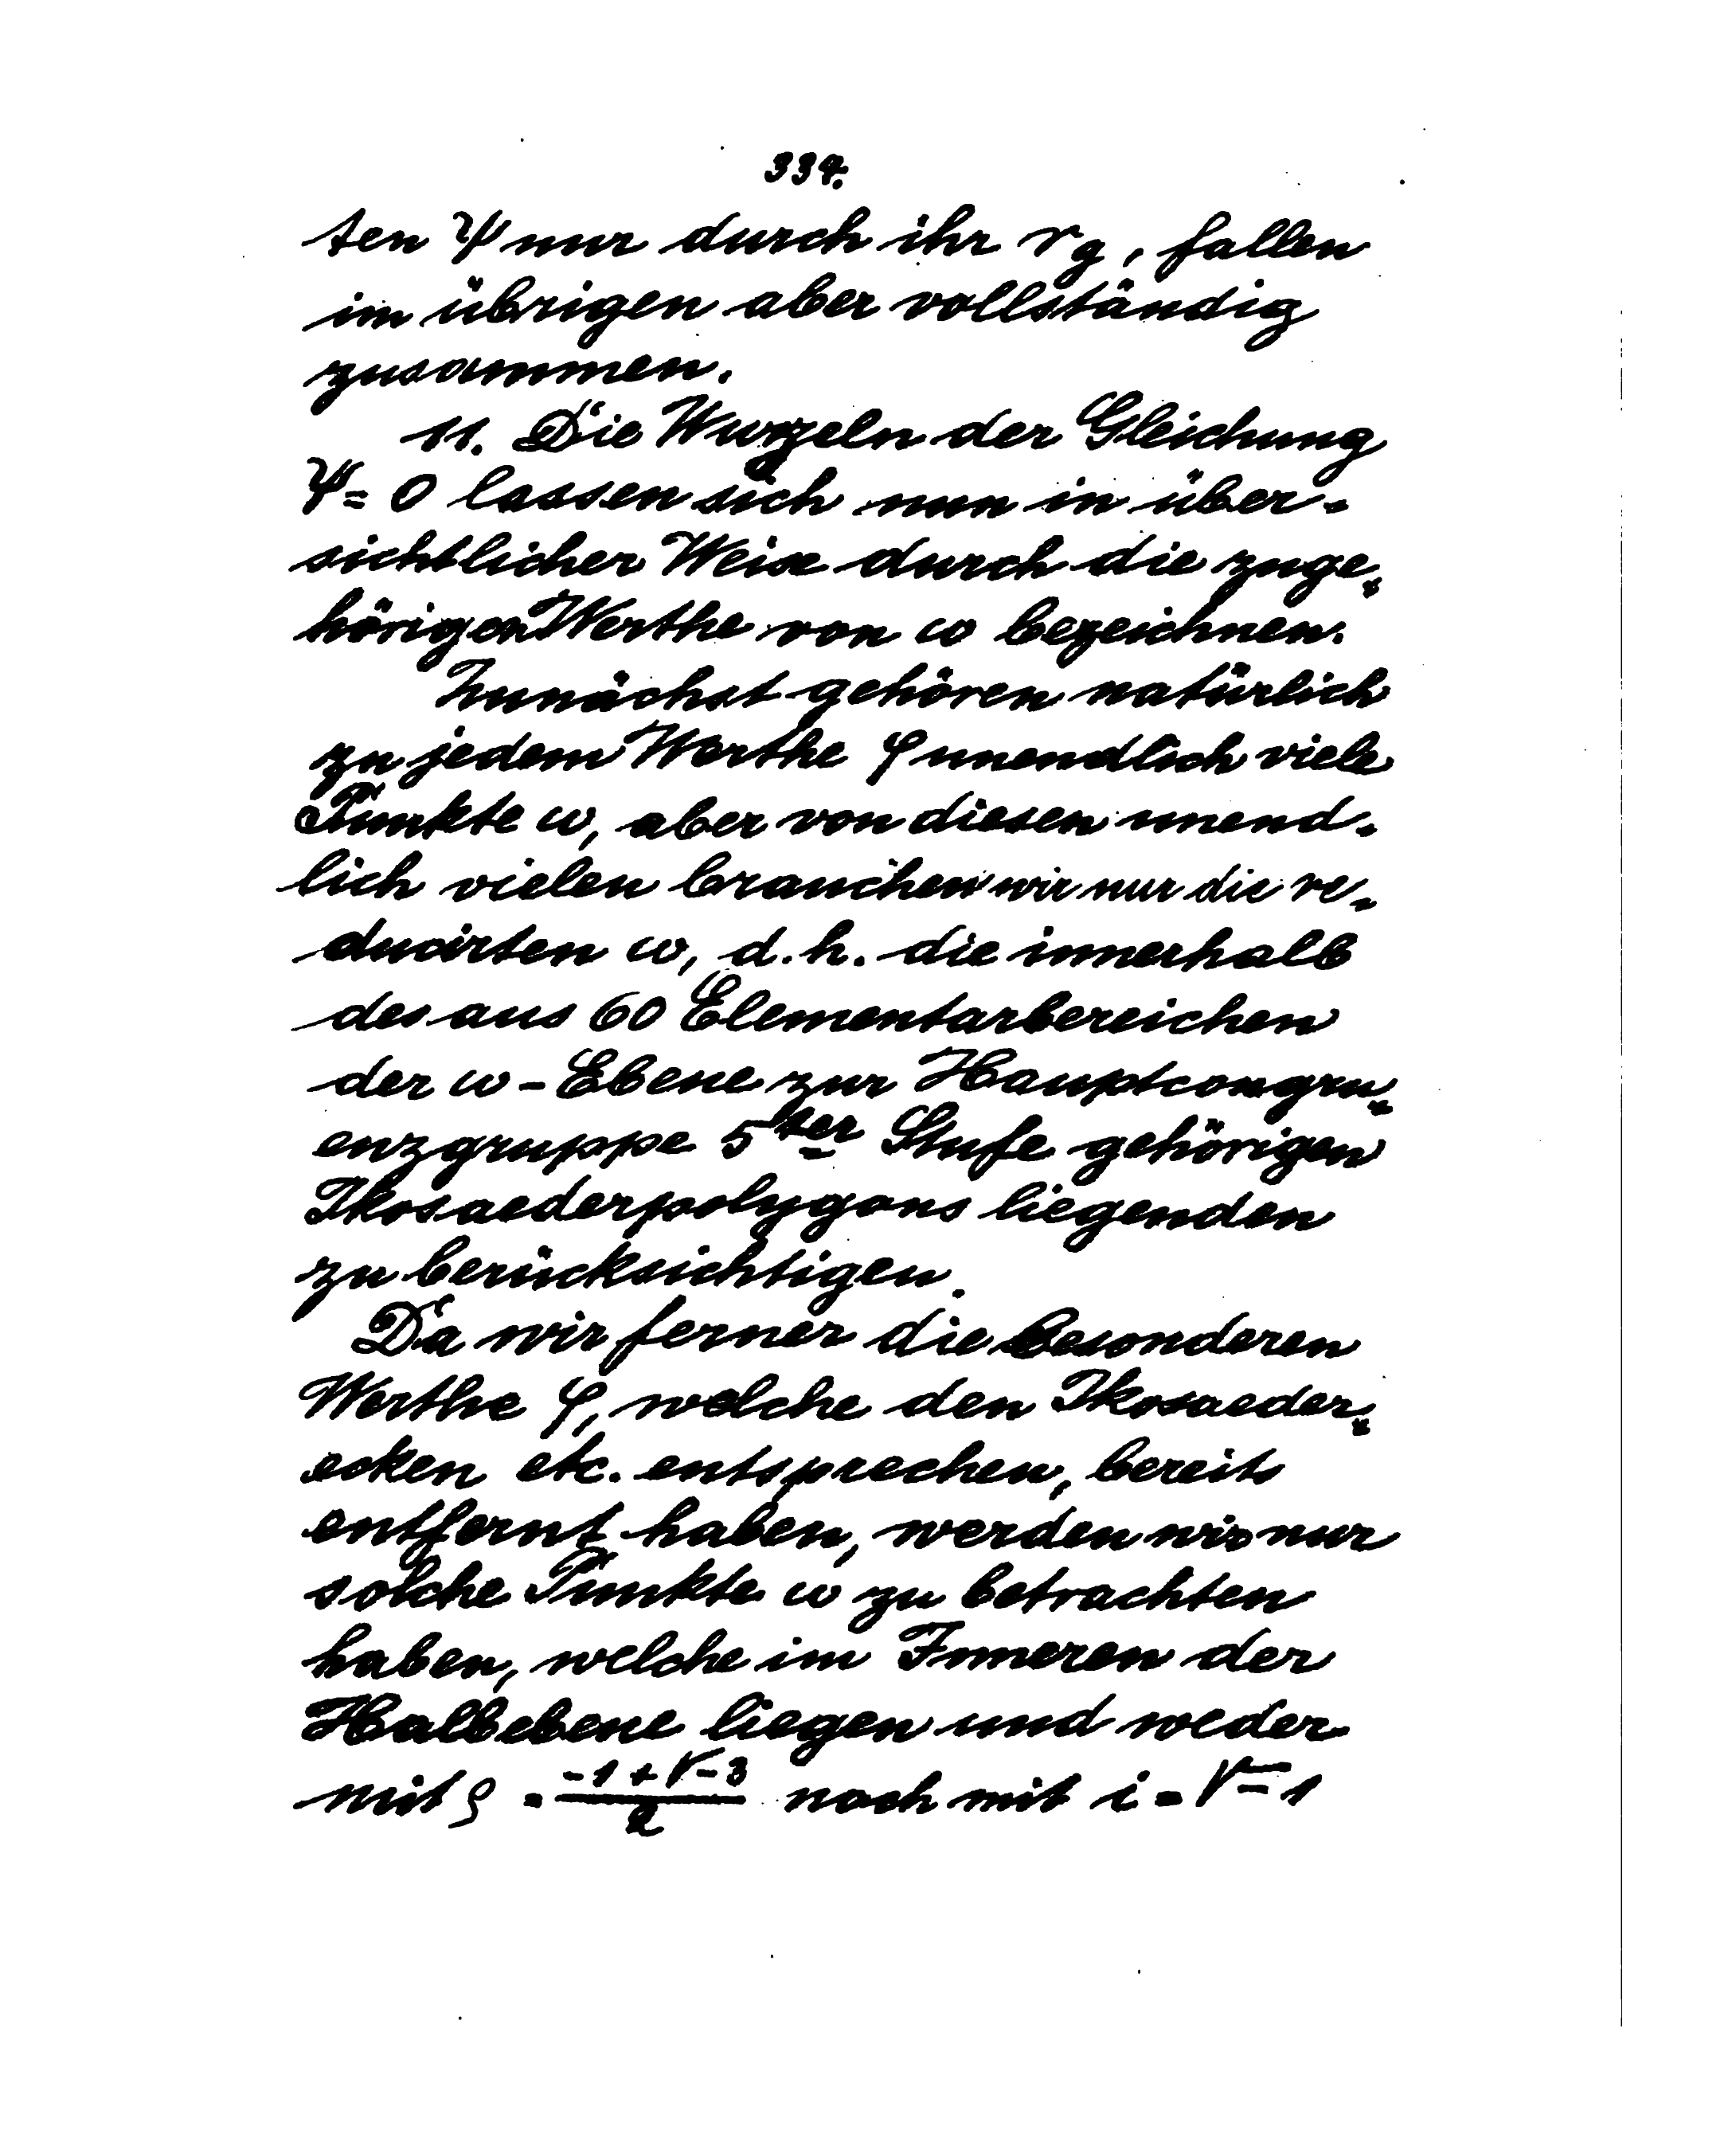 334.
ten Ψ nur durch ihr r g, fallen
im übrigen aber vollständig
zusammen.
11. Die Wurzeln der Gleichung
Ψ = 0 lassen sich nun in über-
sichtlicher Weise durch die zuge-
hörigen Werthe von ω bezeichnen.
Zunächst gehören natürlich
zu jedem Werthe φ unendlich viele
Punkte ω, aber von diesen unend-
lich vielen brauchen wir nur die re-
ducirten ω, d. h. die innerhalb
des aus 60 Elementarbereichen
der ω-Ebene zur Hauptcongru-
enzgruppe 5ter Stufe gehörigen
Ikosaederpolygons liegenden
zu berücksichtigen.
Da wir ferner die besonderen
Werthe φ, welche den Ikosaeder-
ecken etc. entsprechen, bereits
entfernt haben, werden wir nur
solche Punkte ω zu betrachten
haben, welche im Inneren der
Halbebene liegen und weder
mit ρ = (-1 + √-3)/2 noch mit i = √-1